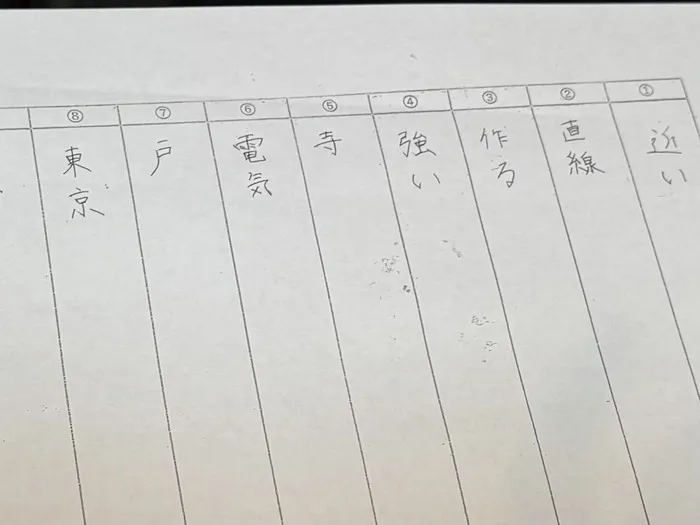 ① 近い
② 直線
③ 作る
④ 強い
⑤ 寺
⑥ 電気
⑦ 戸
⑧ 東京